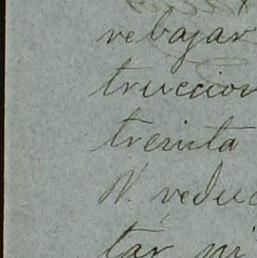 rebajar
truccion
treinta
N. reduc
tar ni